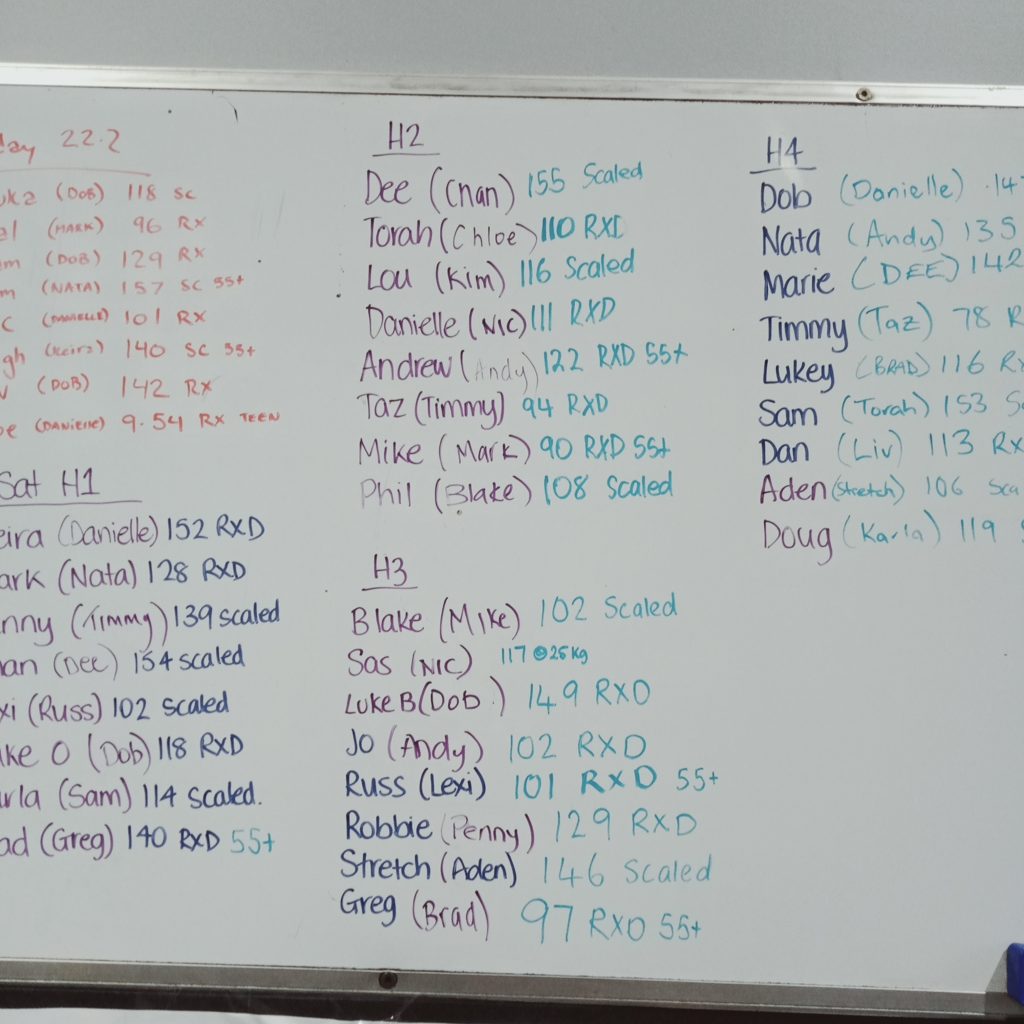 22.2
(DOB) 118 SC
(MARK) 96 RX
(DOB) 129 RX
(NATA) 157 SC 55+
(DANIELLE) 101 RX
(Keira) 140 SC 55+
(DOB) 142 RX
(DANIELLE) 9.54 RX TEEN
Sat H1
(Danielle) 152 RXD
(Nata) 128 RXD
(Timmy) 139 scaled
(Dee) 154 scaled
(Russ) 102 scaled
O (Dob) 118 RXD
(Sam) 114 scaled.
(Greg) 140 RXD 55+
H2
Dee (Chan) 155 Scaled
Torah (Chloe) 110 RXD
Lou (Kim) 116 Scaled
Danielle (NIC) 111 RXD
Andrew (Andy) 122 RXD 55+
Taz (Timmy) 94 RXD
Mike (Mark) 90 RXD 55+
Phil (Blake) 108 Scaled
H3
Blake (Mike) 102 Scaled
Sas (NIC) 117 @25kg
Luke B (Dob) 149 RXD
Jo (Andy) 102 RXD
Russ (Lexi) 101 RXD 55+
Robbie (Penny) 129 RXD
Stretch (Aden) 146 Scaled
Greg (Brad) 97 RXD 55+
H4
Dob (Danielle)
Nata (Andy) 135
Marie (DEE) 142
Timmy (Taz) 78
Lukey (BRAD) 116
Sam (Torah) 153
Dan (Liv) 113 RX
Aden (Stretch) 106
Doug (Karla) 119